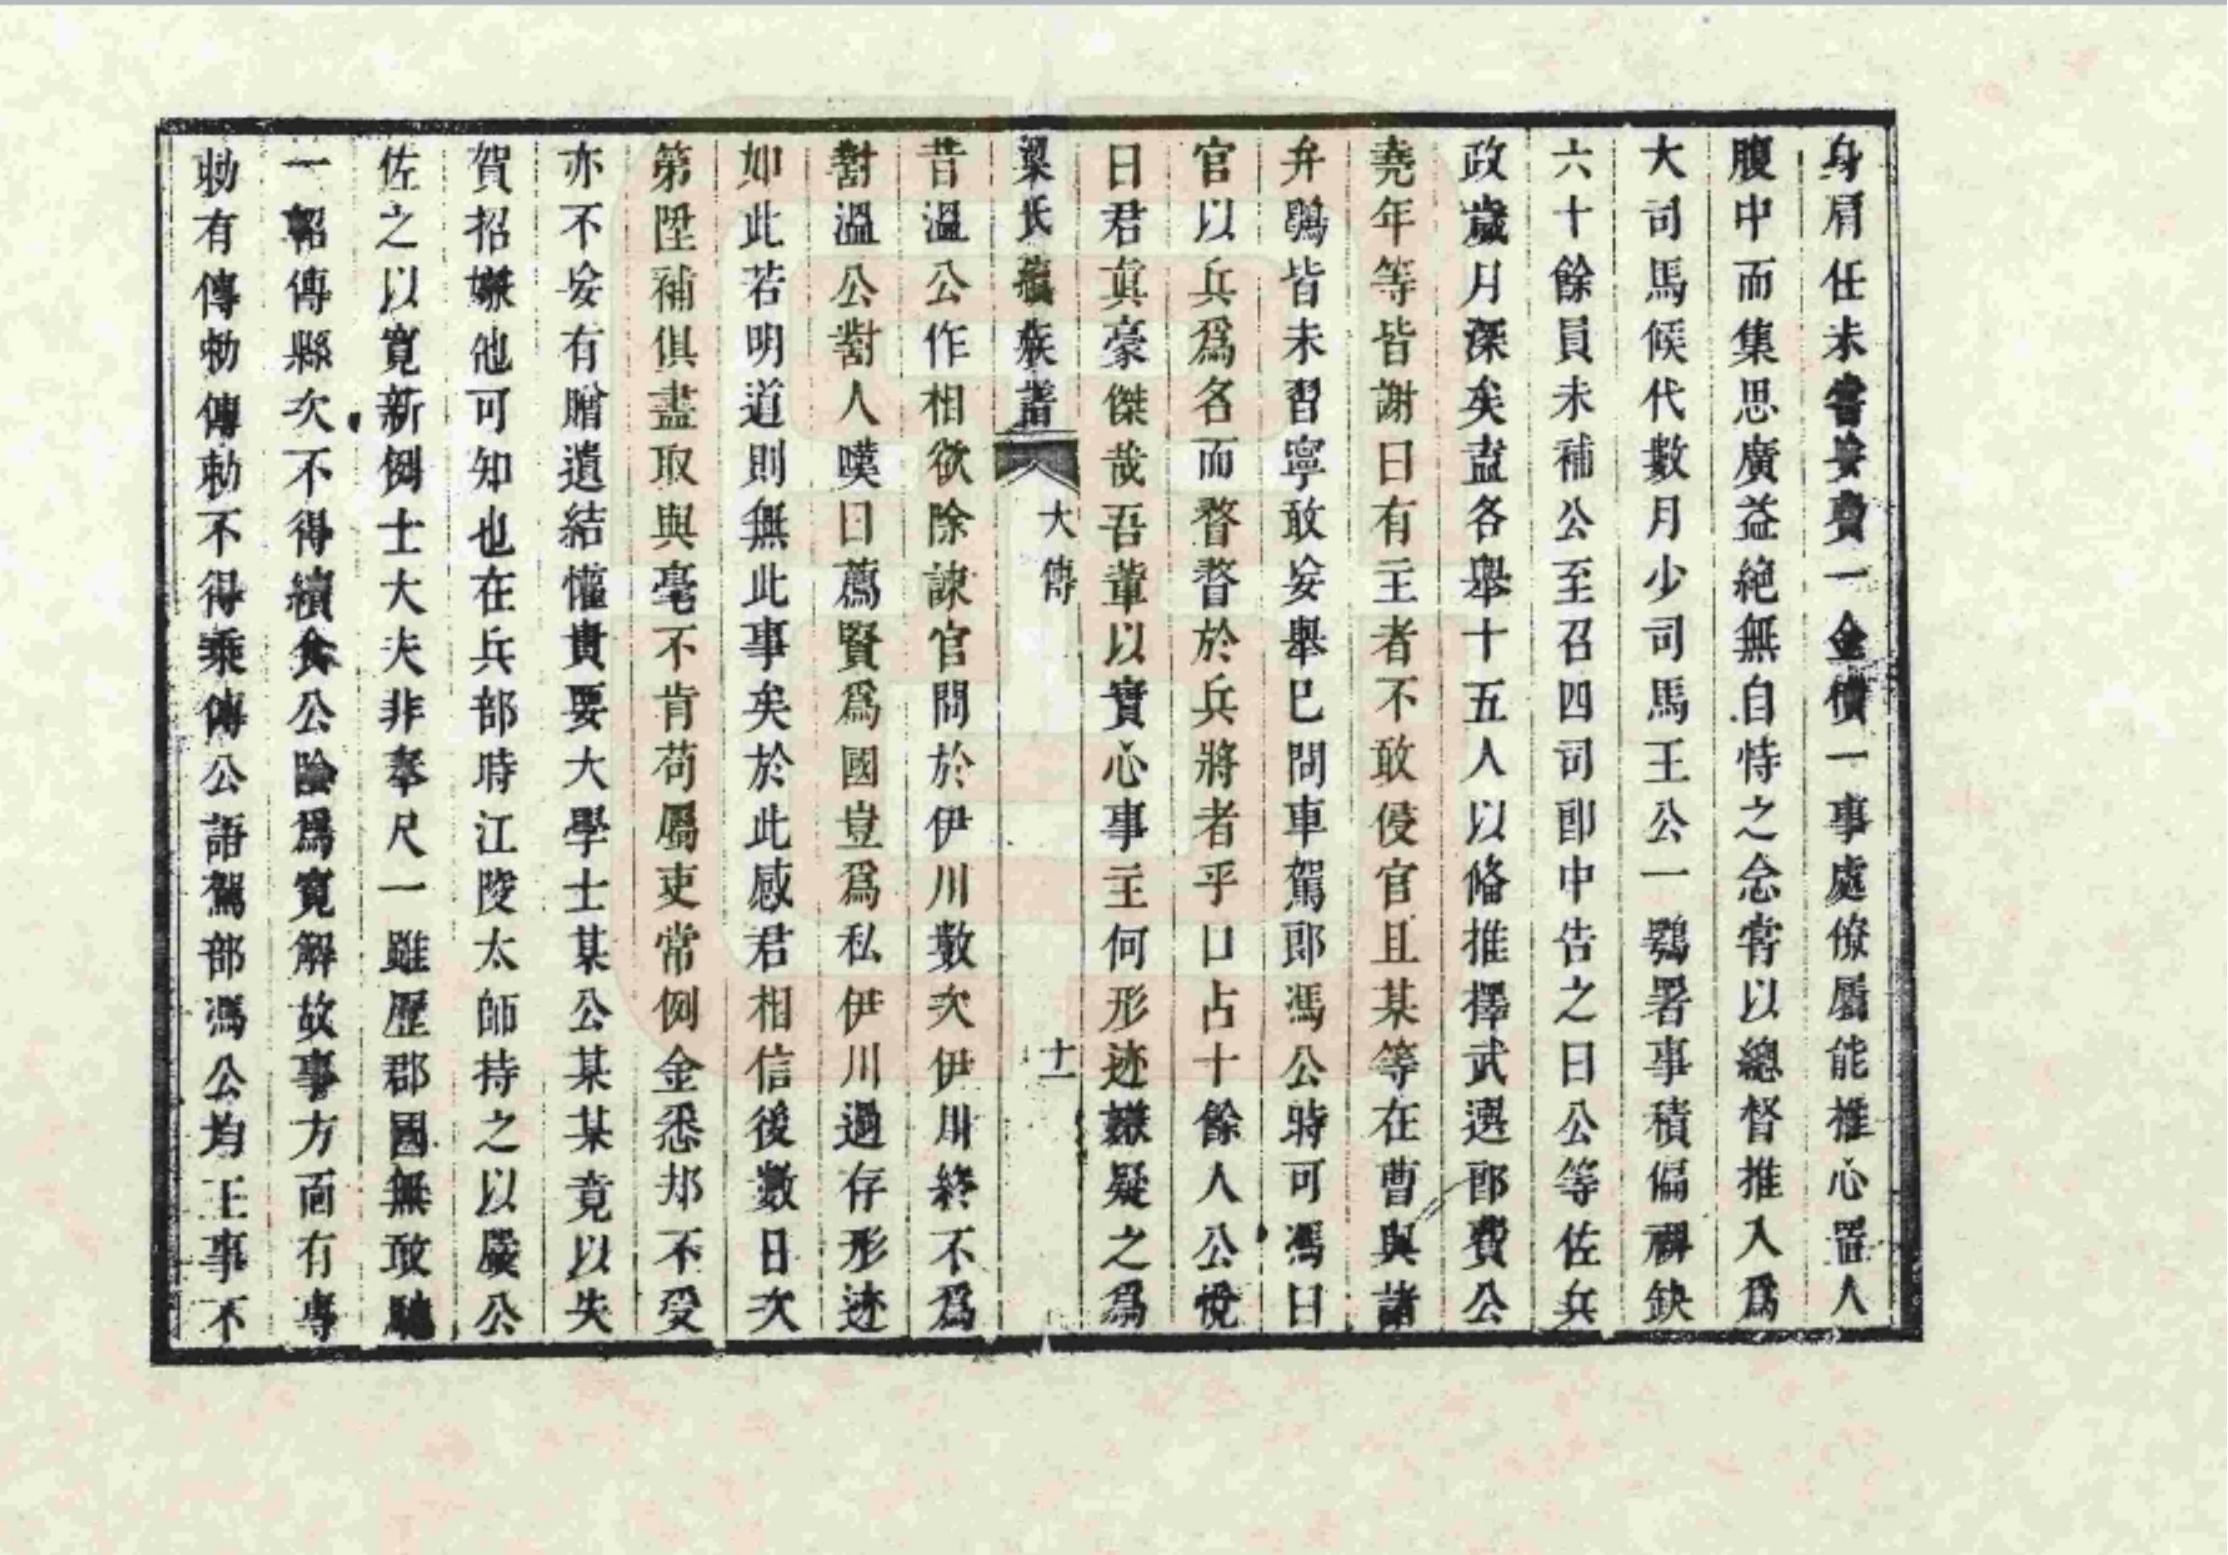 身肩任未嘗妄費一金償一事處僚屬能推心置人
腹中而集思廣益絕無自恃之念嘗以總督推入爲
大司馬候代數月少司馬王公一鶚署事積偏裨缺
六十餘員未補公至召四司郎中告之曰公等佐兵
政歲月深矣盍各舉十五人以俻推擇武選郎費公
堯年等皆謝曰有主者不敢侵官且某等在曹與諸
弁鶡皆未習寧敢妄舉巳問車駕郎馮公時可馮曰
官以兵爲名而瞀瞀於兵將者乎口占十餘人公悅
曰君眞豪傑哉吾輩以實心事主何形迹嫌疑之爲
梁氏族譜
大傳
十一
昔溫公作相欲除諫官問於伊川數次伊川終不爲
對溫公對人嘆曰薦賢爲國豈爲私伊川過存形迹
如此若明道則無此事矣於此感君相信後數日次
第陞補俱盡取與毫不肯苟屬吏常例金悉却不受
亦不妄有贈遺結懽貴要大學士某公某某竟以失
賀招嫌他可知也在兵部時江陵太師持之以嚴公
佐之以寬新例士大夫非奉尺一雖歷郡國無敢馳
一軺傳縣次不得續食公陰爲寬解故事方面有專
勅有傳勅傳勅不得乘傳公語駕部馮公均王事不